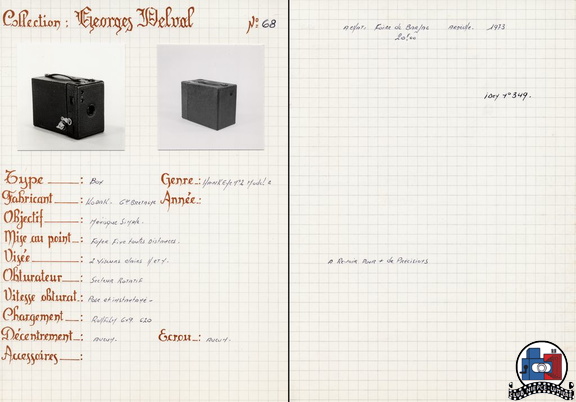 Collection : Georges Delval
N°: 68
Type : Box
Genre : Model 2
Fabricant : Kodak. Gde Bretagne
Année :
Objectif : Ménisque Simple.
Mise au point : Foyer Fixe toutes Distances.
Visée : 2 Viseurs clairs
Obturateur : Secteur Rotatif
Vitesse obturat. : Pose et instantané -
Chargement : Rollfilm 6x9 620
Décentrement : aucun.
Ecrou : aucun.
Accessoires :
Achat. Foire de 1973
20F00
N° 349.
A Revoir Pour + de Précisions